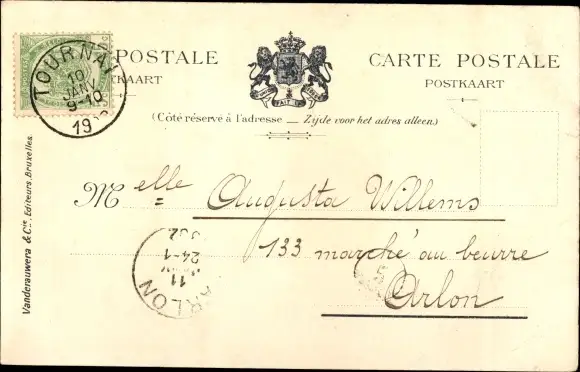 TOURNAI
10
JANV
9-10
19
POSTALE
CARTE POSTALE
KAART
POSTKAART
(Côté réservé à l'adresse — Zijde voor het adres alleen.)
Melle Augusta Willems
133 marché au beurre
Arlon
ARLON
11
24-1
Vanderauwera & Cie, Editeurs, Bruxelles.